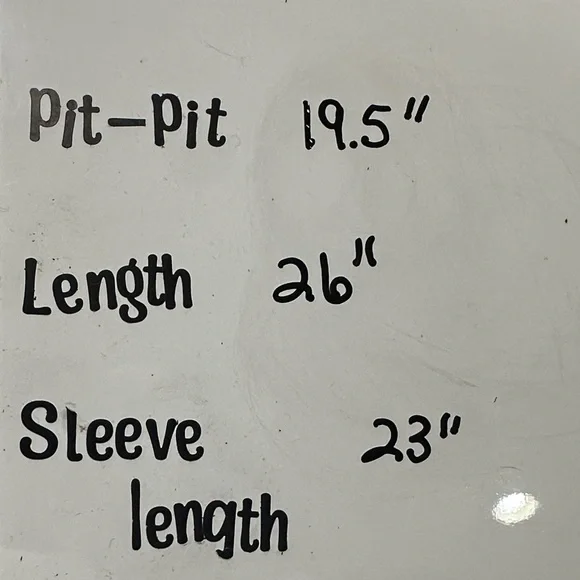 Pit-Pit 19.5"
Length 26"
Sleeve 23"
length